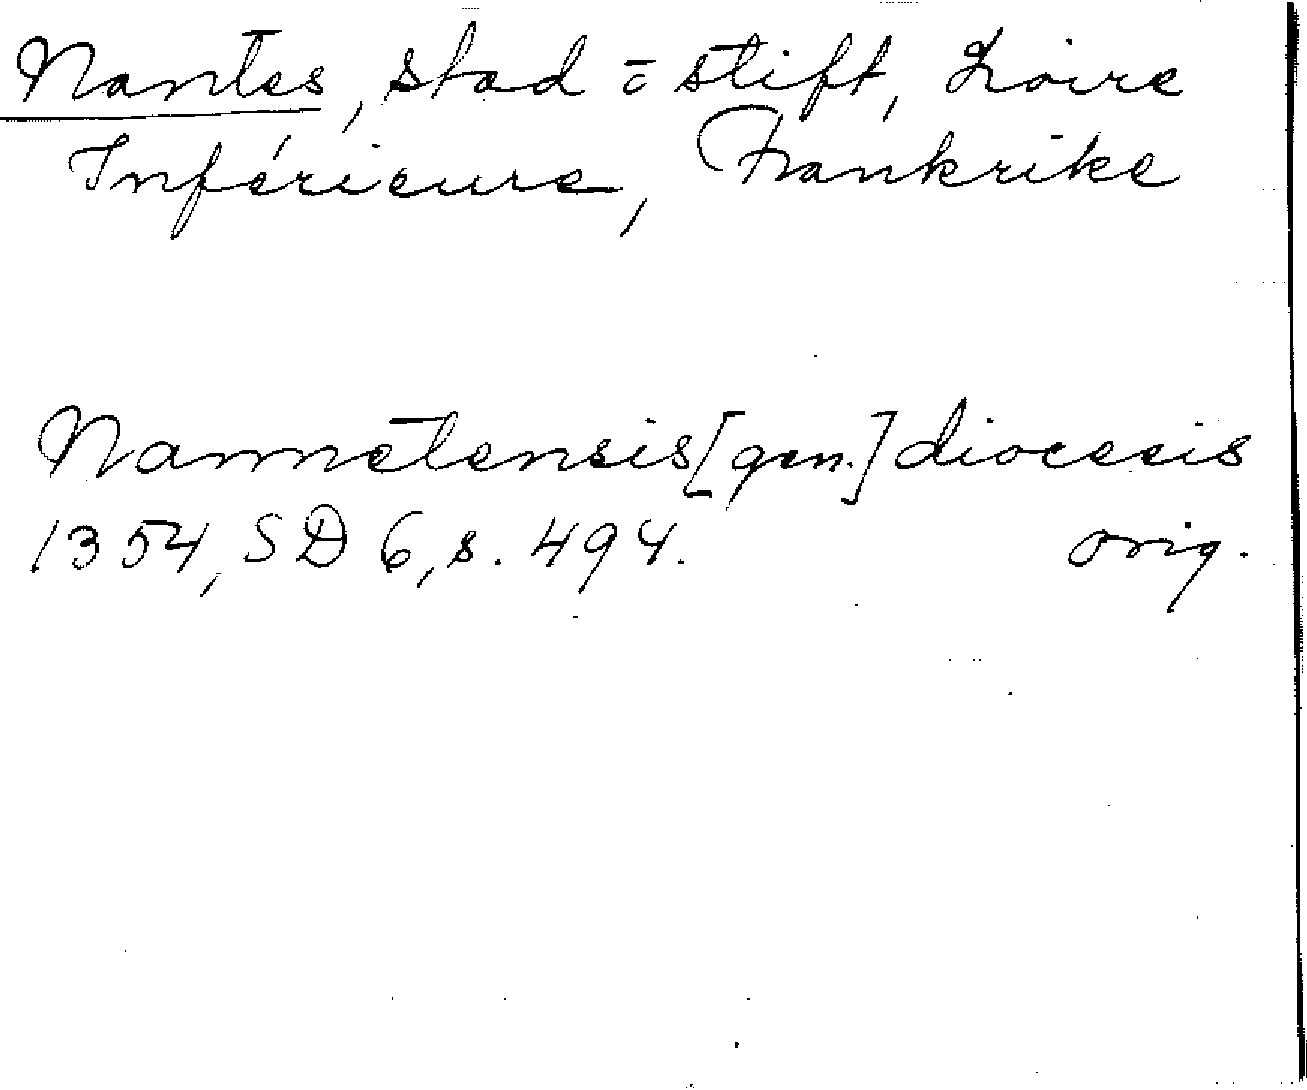 Nantes, stad o stift, Loire
Inférieure, Frankrike
Nannetensis [gen.] diocesis
1354, SD 6, s. 494. orig.